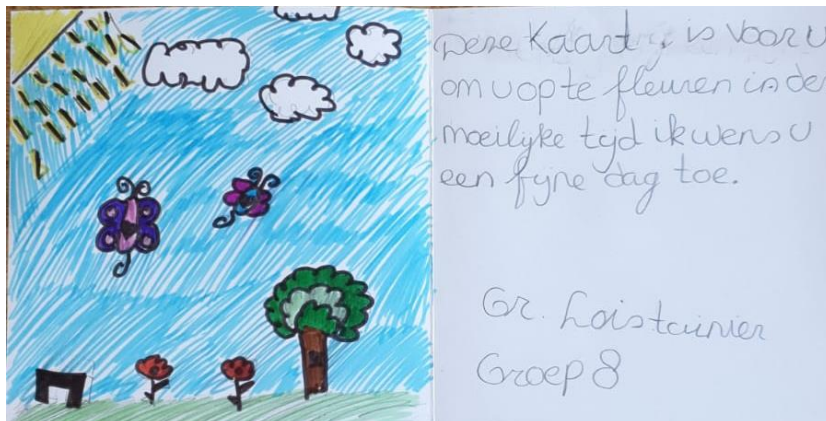 Deze Kaart, is voor u
om u op te fleuren in de
moeilyke tyd ik wens u
een fyne dag toe.
Gr. Lois tainier
Groep 8